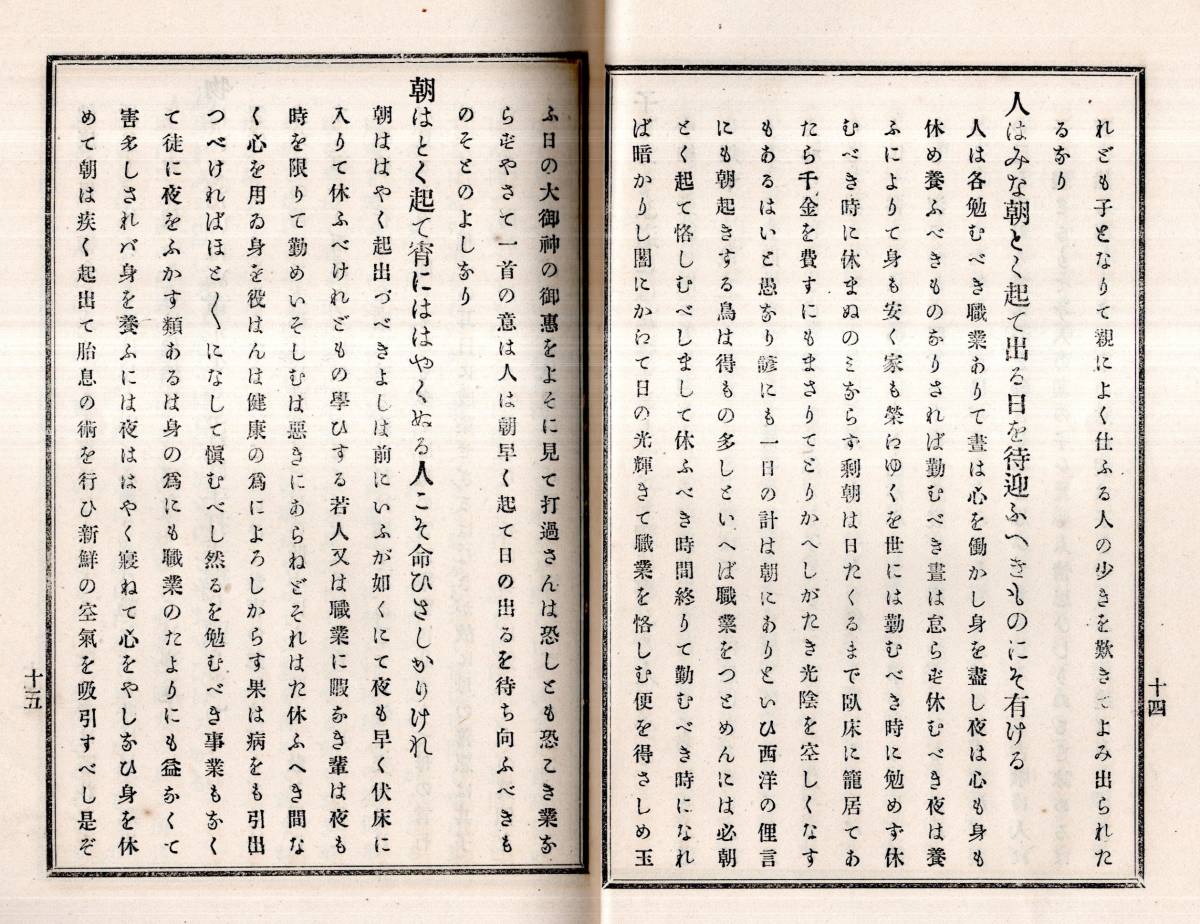 れども子となりて親によく仕ふる人の少きを歎きてよみ出られた
るなり
人はみな朝とく起て出る日を待迎ふへきものにそ有ける
人は各勉むべき職業ありて晝は心を働かし身を盡し夜は心も身も
休め養ふべきものなりされば勤むべき晝は怠らず休むべき夜は養
ふによりて身も安く家も榮えゆくを世には勤むべき時に勉めず休
むべき時に休まぬのミならす剩朝は日たくるまで臥床に籠居てあ
たら千金を費すにもまさりてとりかへしがたき光陰を空しくなす
もあるはいと愚なり諺にも一日の計は朝にありといひ西洋の俚言
にも朝起きする鳥は得もの多しといへば職業をつとめんには必朝
とく起て恪しむべしまして休ふべき時間終りて勤むべき時になれ
ば暗かりし闇にかわて日の光輝きて職業を恪しむ便を得さしめ玉
十四
ふ日の大御神の御惠をよそに見て打過さんは恐しとも恐こき業な
らずやさて一首の意は人は朝早く起て日の出るを待ち向ふべきも
のそとのよしなり
朝はとく起て宵にははやくぬる人こそ命ひさしかりけれ
朝ははやく起出づべきよしは前にいふが如くにて夜も早く伏床に
入りて休ふべけれどもの學ひする若人又は職業に暇なき輩は夜も
時を限りて勤めいそしむは惡きにあらねどそれはた休ふへき間な
く心を用ゐ身を役はんは健康の爲によろしからす果は病をも引出
つべければほと〳〵になして愼むべし然るを勉むべき事業もなく
て徒に夜をふかす類あるは身の爲にも職業のたよりにも益なくて
害多しされバ身を養ふには夜ははやく寢ねて心をやしなひ身を休
めて朝は疾く起出て胎息の術を行ひ新鮮の空氣を吸引すべし是ぞ
十五